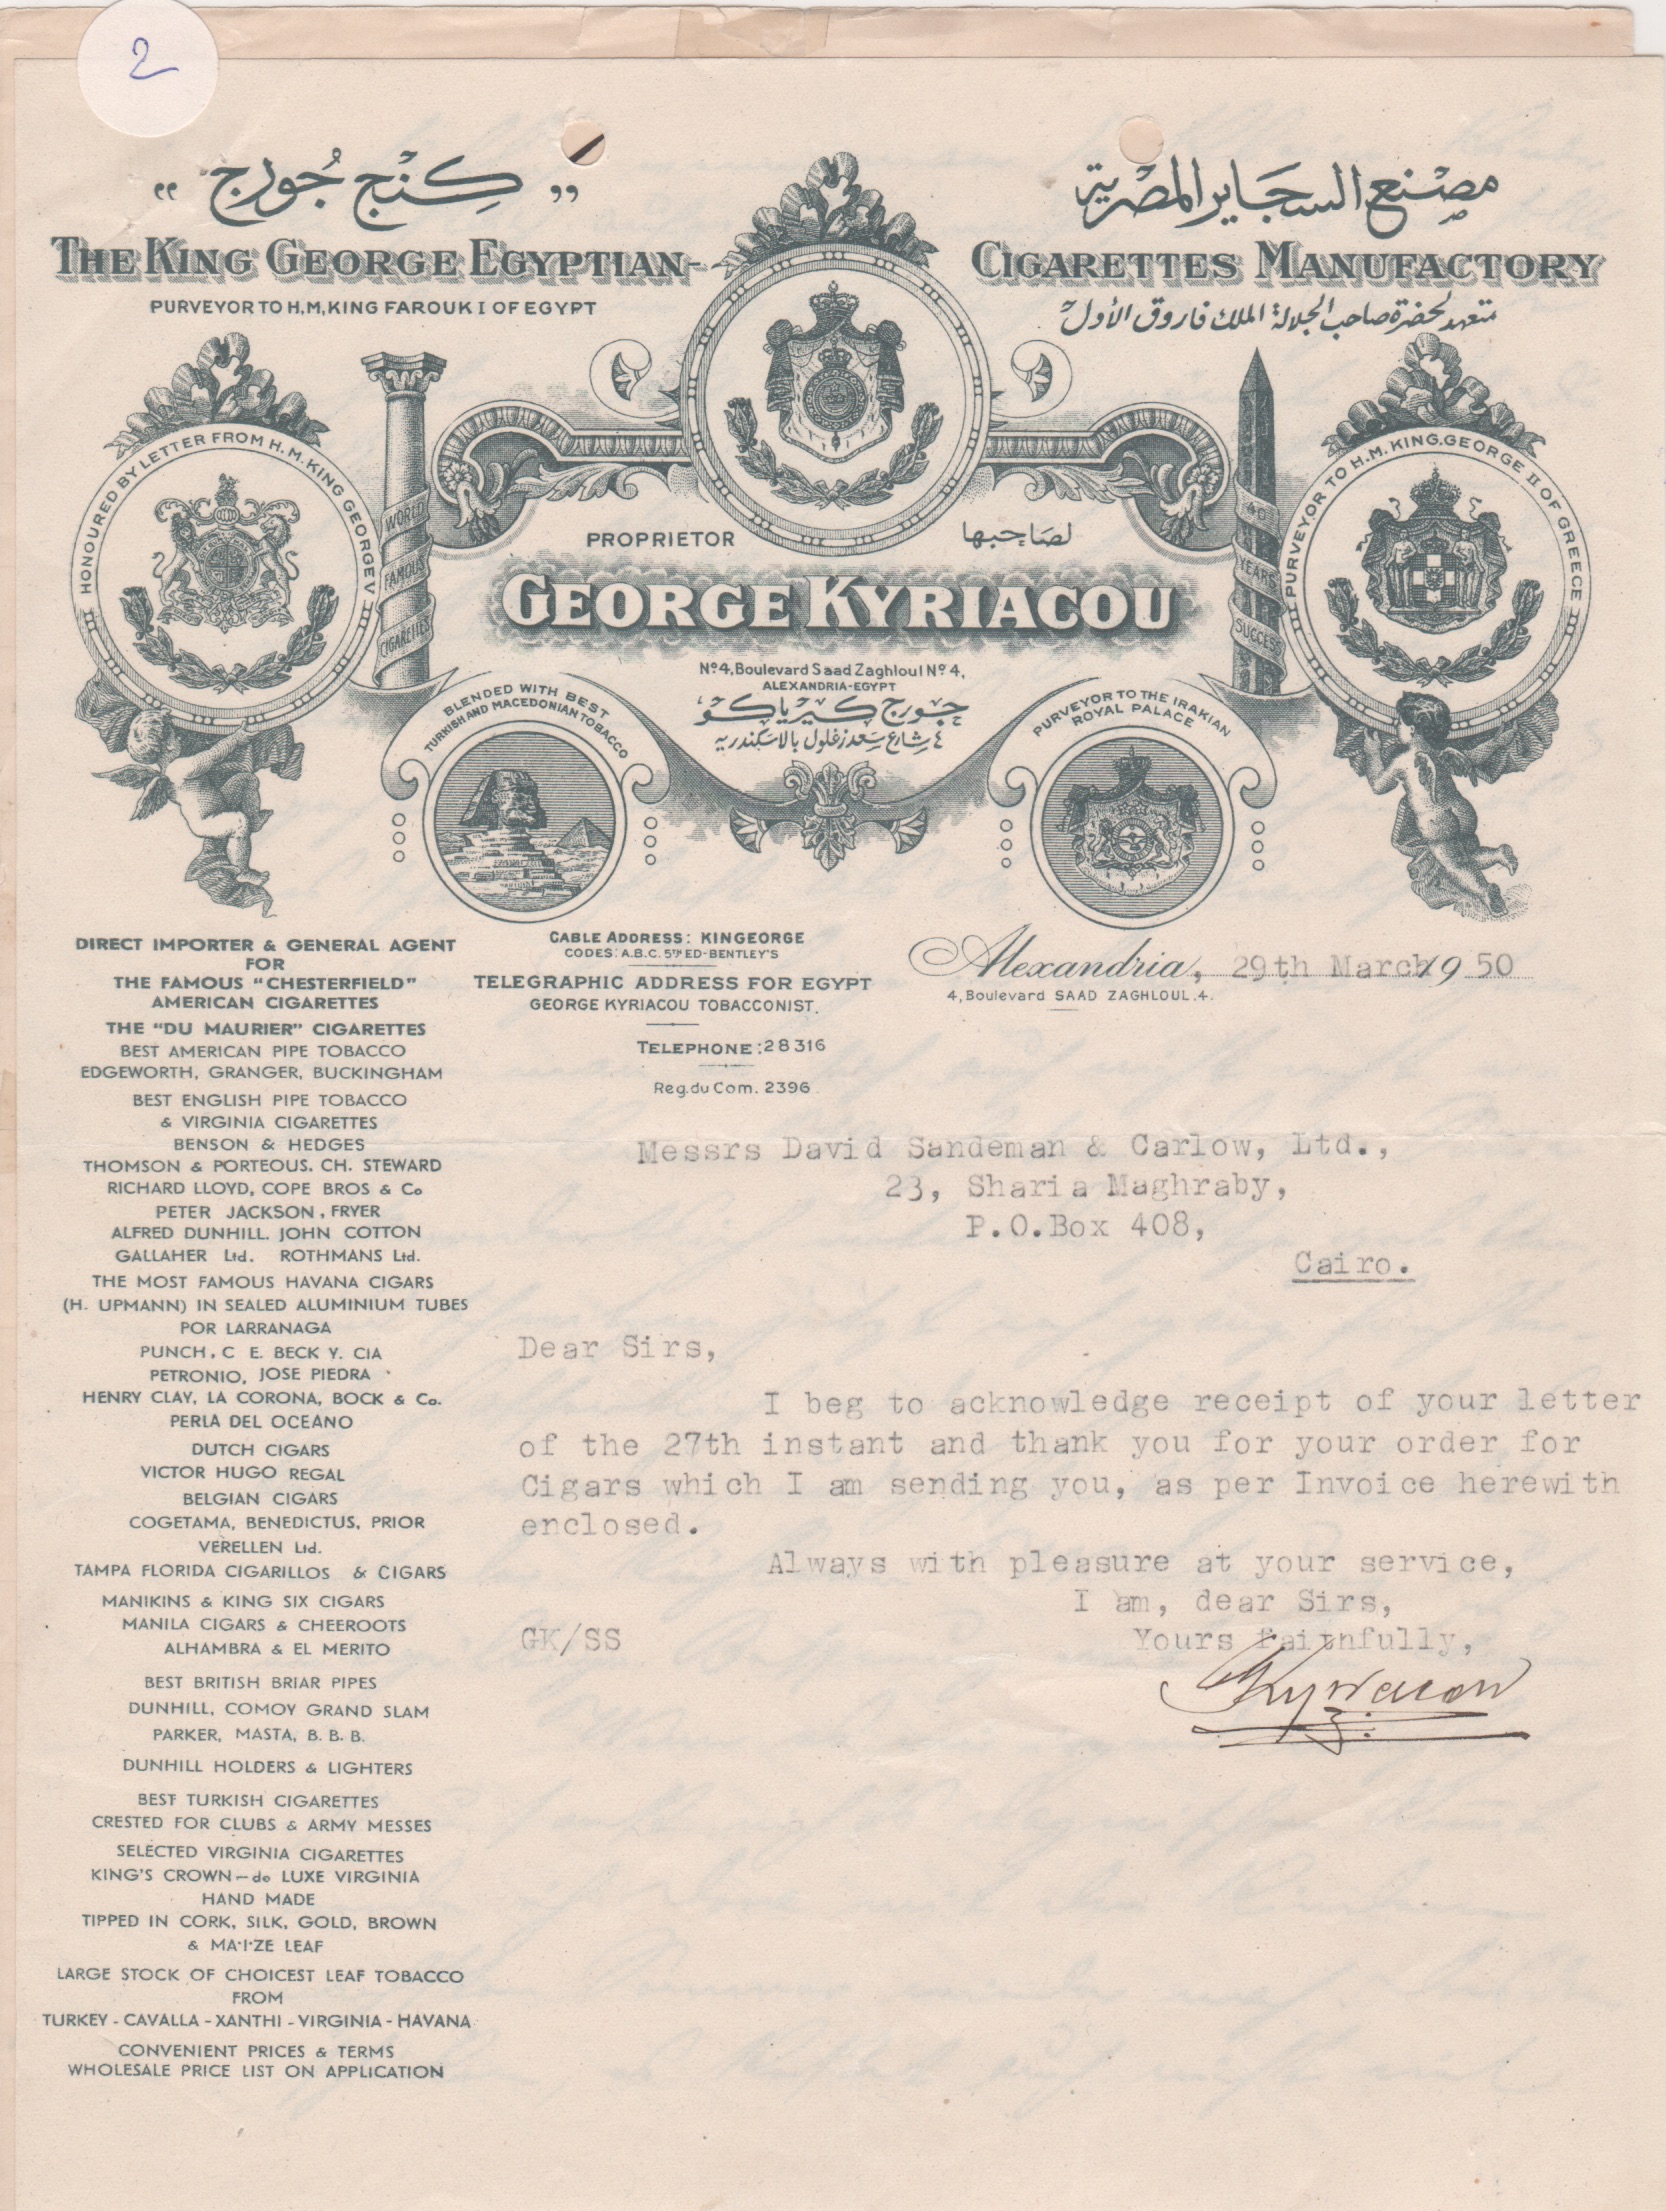 2
" كنج جورج "
مصنع السجاير المصرية
THE KING GEORGE EGYPTIAN-
CIGARETTES MANUFACTORY
PURVEYOR TO H.M, KING FAROUK I OF EGYPT
متعهد لحضرة صاحب الجلالة الملك فاروق الأول
HONOURED BY LETTER FROM H.M. KING GEORGE V
WORLD
FAMOUS
CIGARETTES
40
YEARS
SUCCESS
PURVEYOR TO H.M. KING.GEORGE II OF GREECE
PROPRIETOR
لصاحبها
GEORGE KYRIACOU
Nº4, Boulevard Saad Zaghloul Nº 4,
ALEXANDRIA-EGYPT
جورج كيرياكو
٤ شارع سعد زغلول بالاسكندريه
BLENDED WITH BEST
TURKISH AND MACEDONIAN TOBACCO
PURVEYOR TO THE IRAKIAN
ROYAL PALACE
DIRECT IMPORTER & GENERAL AGENT
FOR
THE FAMOUS "CHESTERFIELD"
AMERICAN CIGARETTES
THE "DU MAURIER" CIGARETTES
BEST AMERICAN PIPE TOBACCO
EDGEWORTH, GRANGER, BUCKINGHAM
BEST ENGLISH PIPE TOBACCO
& VIRGINIA CIGARETTES
BENSON & HEDGES
THOMSON & PORTEOUS. CH. STEWARD
RICHARD LLOYD, COPE BROS & Co
PETER JACKSON, FRYER
ALFRED DUNHILL. JOHN COTTON
GALLAHER Ltd. ROTHMANS Ltd.
THE MOST FAMOUS HAVANA CIGARS
(H. UPMANN) IN SEALED ALUMINIUM TUBES
POR LARRANAGA
PUNCH, C E. BECK Y. CIA
PETRONIO, JOSE PIEDRA
HENRY CLAY, LA CORONA, BOCK & Co.
PERLA DEL OCEANO
DUTCH CIGARS
VICTOR HUGO REGAL
BELGIAN CIGARS
COGETAMA, BENEDICTUS, PRIOR
VERELLEN Ltd.
TAMPA FLORIDA CIGARILLOS & CIGARS
MANIKINS & KING SIX CIGARS
MANILA CIGARS & CHEEROOTS
ALHAMBRA & EL MERITO
BEST BRITISH BRIAR PIPES
DUNHILL, COMOY GRAND SLAM
PARKER, MASTA, B. B. B.
DUNHILL HOLDERS & LIGHTERS
BEST TURKISH CIGARETTES
CRESTED FOR CLUBS & ARMY MESSES
SELECTED VIRGINIA CIGARETTES
KING'S CROWN-de LUXE VIRGINIA
HAND MADE
TIPPED IN CORK, SILK, GOLD, BROWN
& MA·I·ZE LEAF
LARGE STOCK OF CHOICEST LEAF TOBACCO
FROM
TURKEY - CAVALLA - XANTHI - VIRGINIA - HAVANA
CONVENIENT PRICES & TERMS
WHOLESALE PRICE LIST ON APPLICATION
CABLE ADDRESS: KINGEORGE
CODES: A.B.C. 5TH ED-BENTLEY'S
TELEGRAPHIC ADDRESS FOR EGYPT
GEORGE KYRIACOU TOBACCONIST.
TELEPHONE: 28316
Reg.du Com. 2396
Alexandria, 29th March 19 50
4, Boulevard SAAD ZAGHLOUL .4.
Messrs David Sandeman & Carlow, Ltd.,
23, Sharia Maghraby,
P.O.Box 408,
Cairo.
Dear Sirs,
I beg to acknowledge receipt of your letter
of the 27th instant and thank you for your order for
Cigars which I am sending you, as per Invoice herewith
enclosed.
Always with pleasure at your service,
I am, dear Sirs,
GK/SS Yours faithfully,
GKyriacou